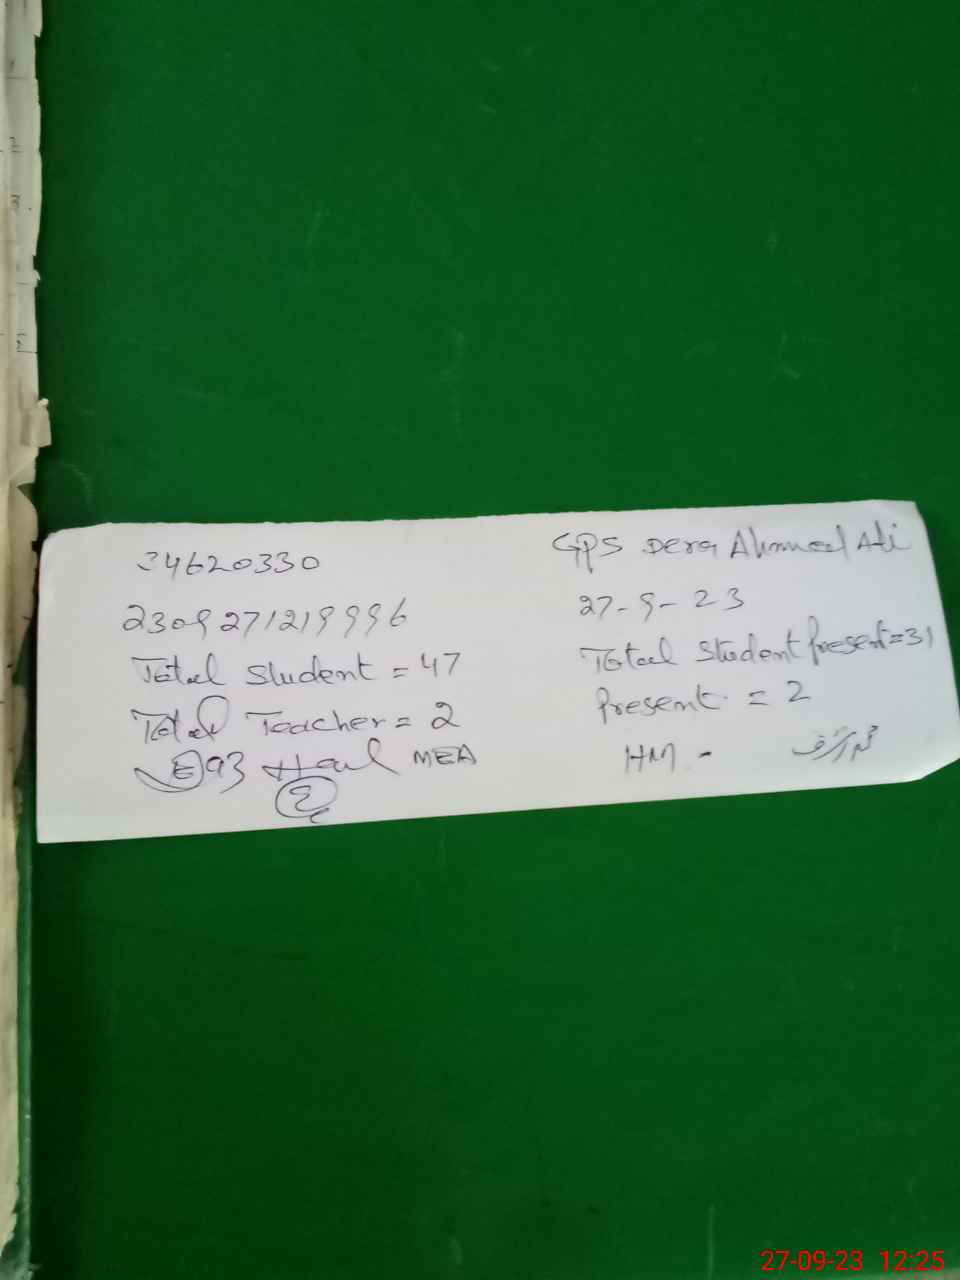 34620330
GPS Dera Ahmed Ali
230927121999 6
27-9-23
Total Student = 47
Total Student present = 31
Total Teacher = 2
Present = 2
MEA
HM -
محمد اشرف
2
27-09-23 12:25